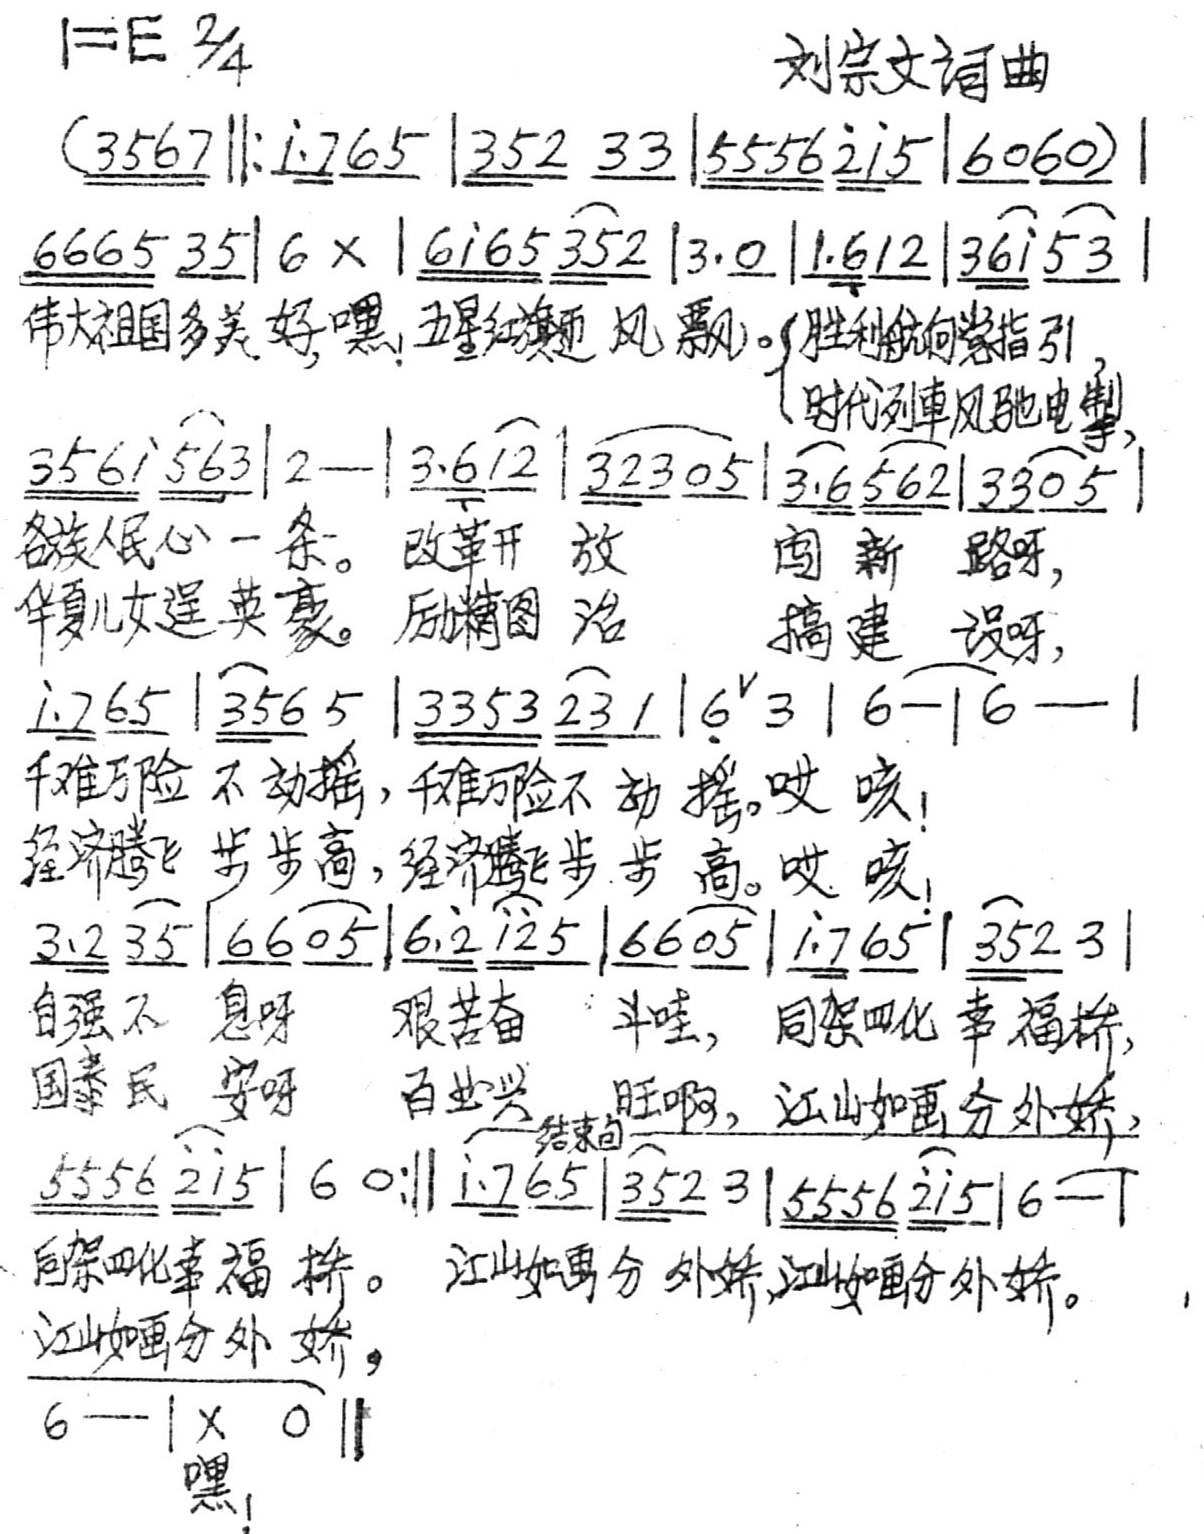 1=E 2/4
刘宗文词曲
(3567‖:i·765|352 33|5556 2i5|6060)|
6665 35|6 X|6i65 352|3·0|1·612|36i 53|
伟大祖国多美好,嘿!五星红旗迎风飘。{胜利航向党指引,
时代列車风驰电掣,
356i 563|2—|3·612|32305|3·6562|3305|
各族人民心一条。改革开放 闯新路呀,
华夏儿女逞英豪。励精图治 搞建设呀,
i·765|3565|3353 231|6ˇ3|6—|6—|
千难万险不动摇,千难万险不动摇。哎咳!
经济腾飞步步高,经济腾飞步步高。哎咳!
3·235|6605|6·2i25|6605|i·765|3523|
自强不息呀 艰苦奋斗哇,同架四化幸福桥,
国泰民安呀 百业兴旺啊,江山如画分外娇,
结束句
5556 2i5|6 0:‖i·765|3523|5556 2i5|6—|
同架四化幸福桥。江山如画分外娇,江山如画分外娇。
江山如画分外娇,
6—|X 0‖
嘿!